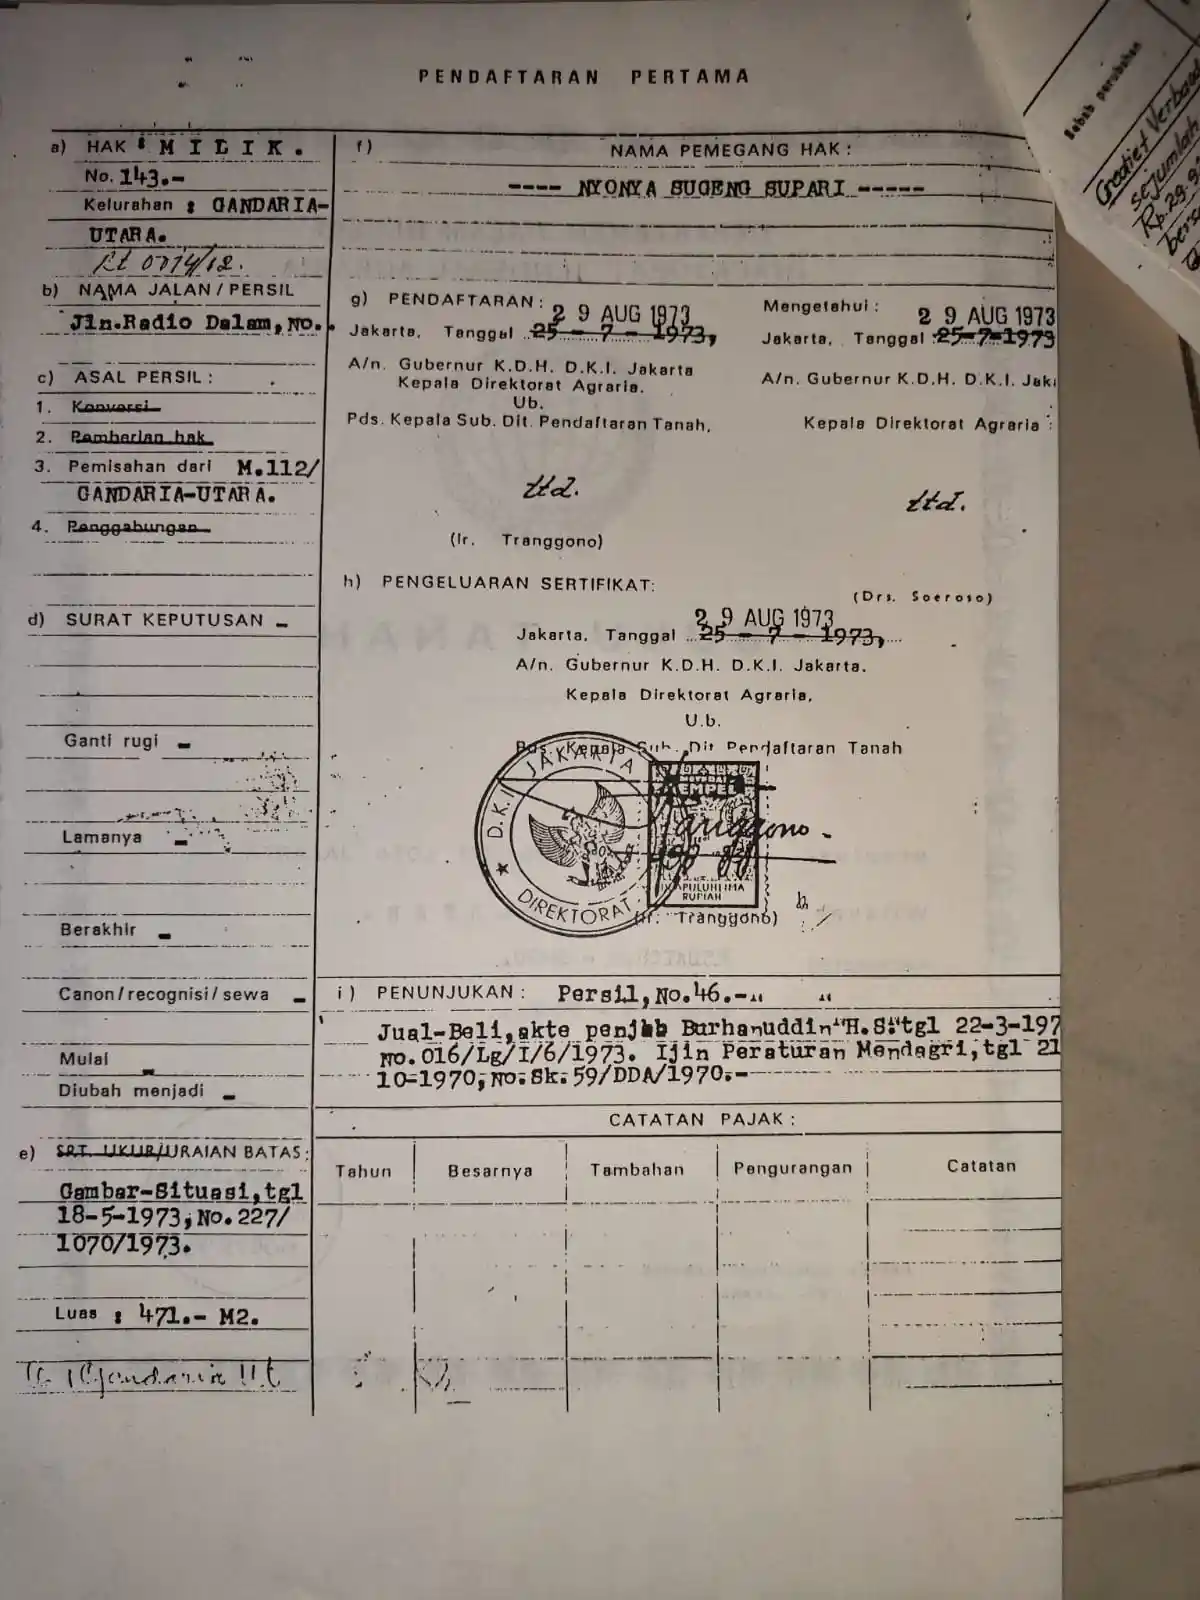 PENDAFTARAN PERTAMA
a) HAK : MILIK.
No. 143.-
Kelurahan : GANDARIA-
UTARA.
b) NAMA JALAN / PERSIL
Jln.Radio Dalam, No.
c) ASAL PERSIL :
1. Konversi
2. Pemberian hak
3. Pemisahan dari M.112/
GANDARIA-UTARA.
4. Penggabungan
d) SURAT KEPUTUSAN -
Ganti rugi -
Lamanya -
Berakhir -
Canon / recognisi / sewa -
Mulai -
Diubah menjadi -
e) SRT. UKUR/URAIAN BATAS :
Gambar-Situasi, tgl
18-5-1973, No. 227/
1070/1973.
Luas : 471.- M2.
f) NAMA PEMEGANG HAK :
---- NYONYA SUGENG SUPARI -----
g) PENDAFTARAN :
29 AUG 1973
Jakarta, Tanggal 25 - 7 - 1973,
A/n. Gubernur K.D.H. D.K.I. Jakarta
Kepala Direktorat Agraria.
Ub.
Pds. Kepala Sub. Dit. Pendaftaran Tanah,
ttd.
(Ir. Tranggono)
Mengetahui :
29 AUG 1973
Jakarta, Tanggal 25-7-1973
A/n. Gubernur K.D.H. D.K.I. Jak
Kepala Direktorat Agraria :
ttd.
(Drs. Soeroso)
h) PENGELUARAN SERTIFIKAT:
29 AUG 1973
Jakarta, Tanggal 25 - 7 - 1973,
A/n. Gubernur K.D.H. D.K.I. Jakarta.
Kepala Direktorat Agraria,
U.b.
Pds. Kepala Sub. Dit Pendaftaran Tanah
D.K.I JAKARTA
DIREKTORAT
RUPIAH
(Ir. Tranggono)
i) PENUNJUKAN : Persil, No. 46.-
Jual-Beli, akte penjbb Burhanuddin H.S. tgl 22-3-197
No. 016/Lg/I/6/1973. Ijin Peraturan Mendagri, tgl 21
10-1970, No. Sk. 59/DDA/1970.-
CATATAN PAJAK :
Tahun Besarnya Tambahan Pengurangan Catatan
Sebab perubahan
Crediet Verband
sejumlah